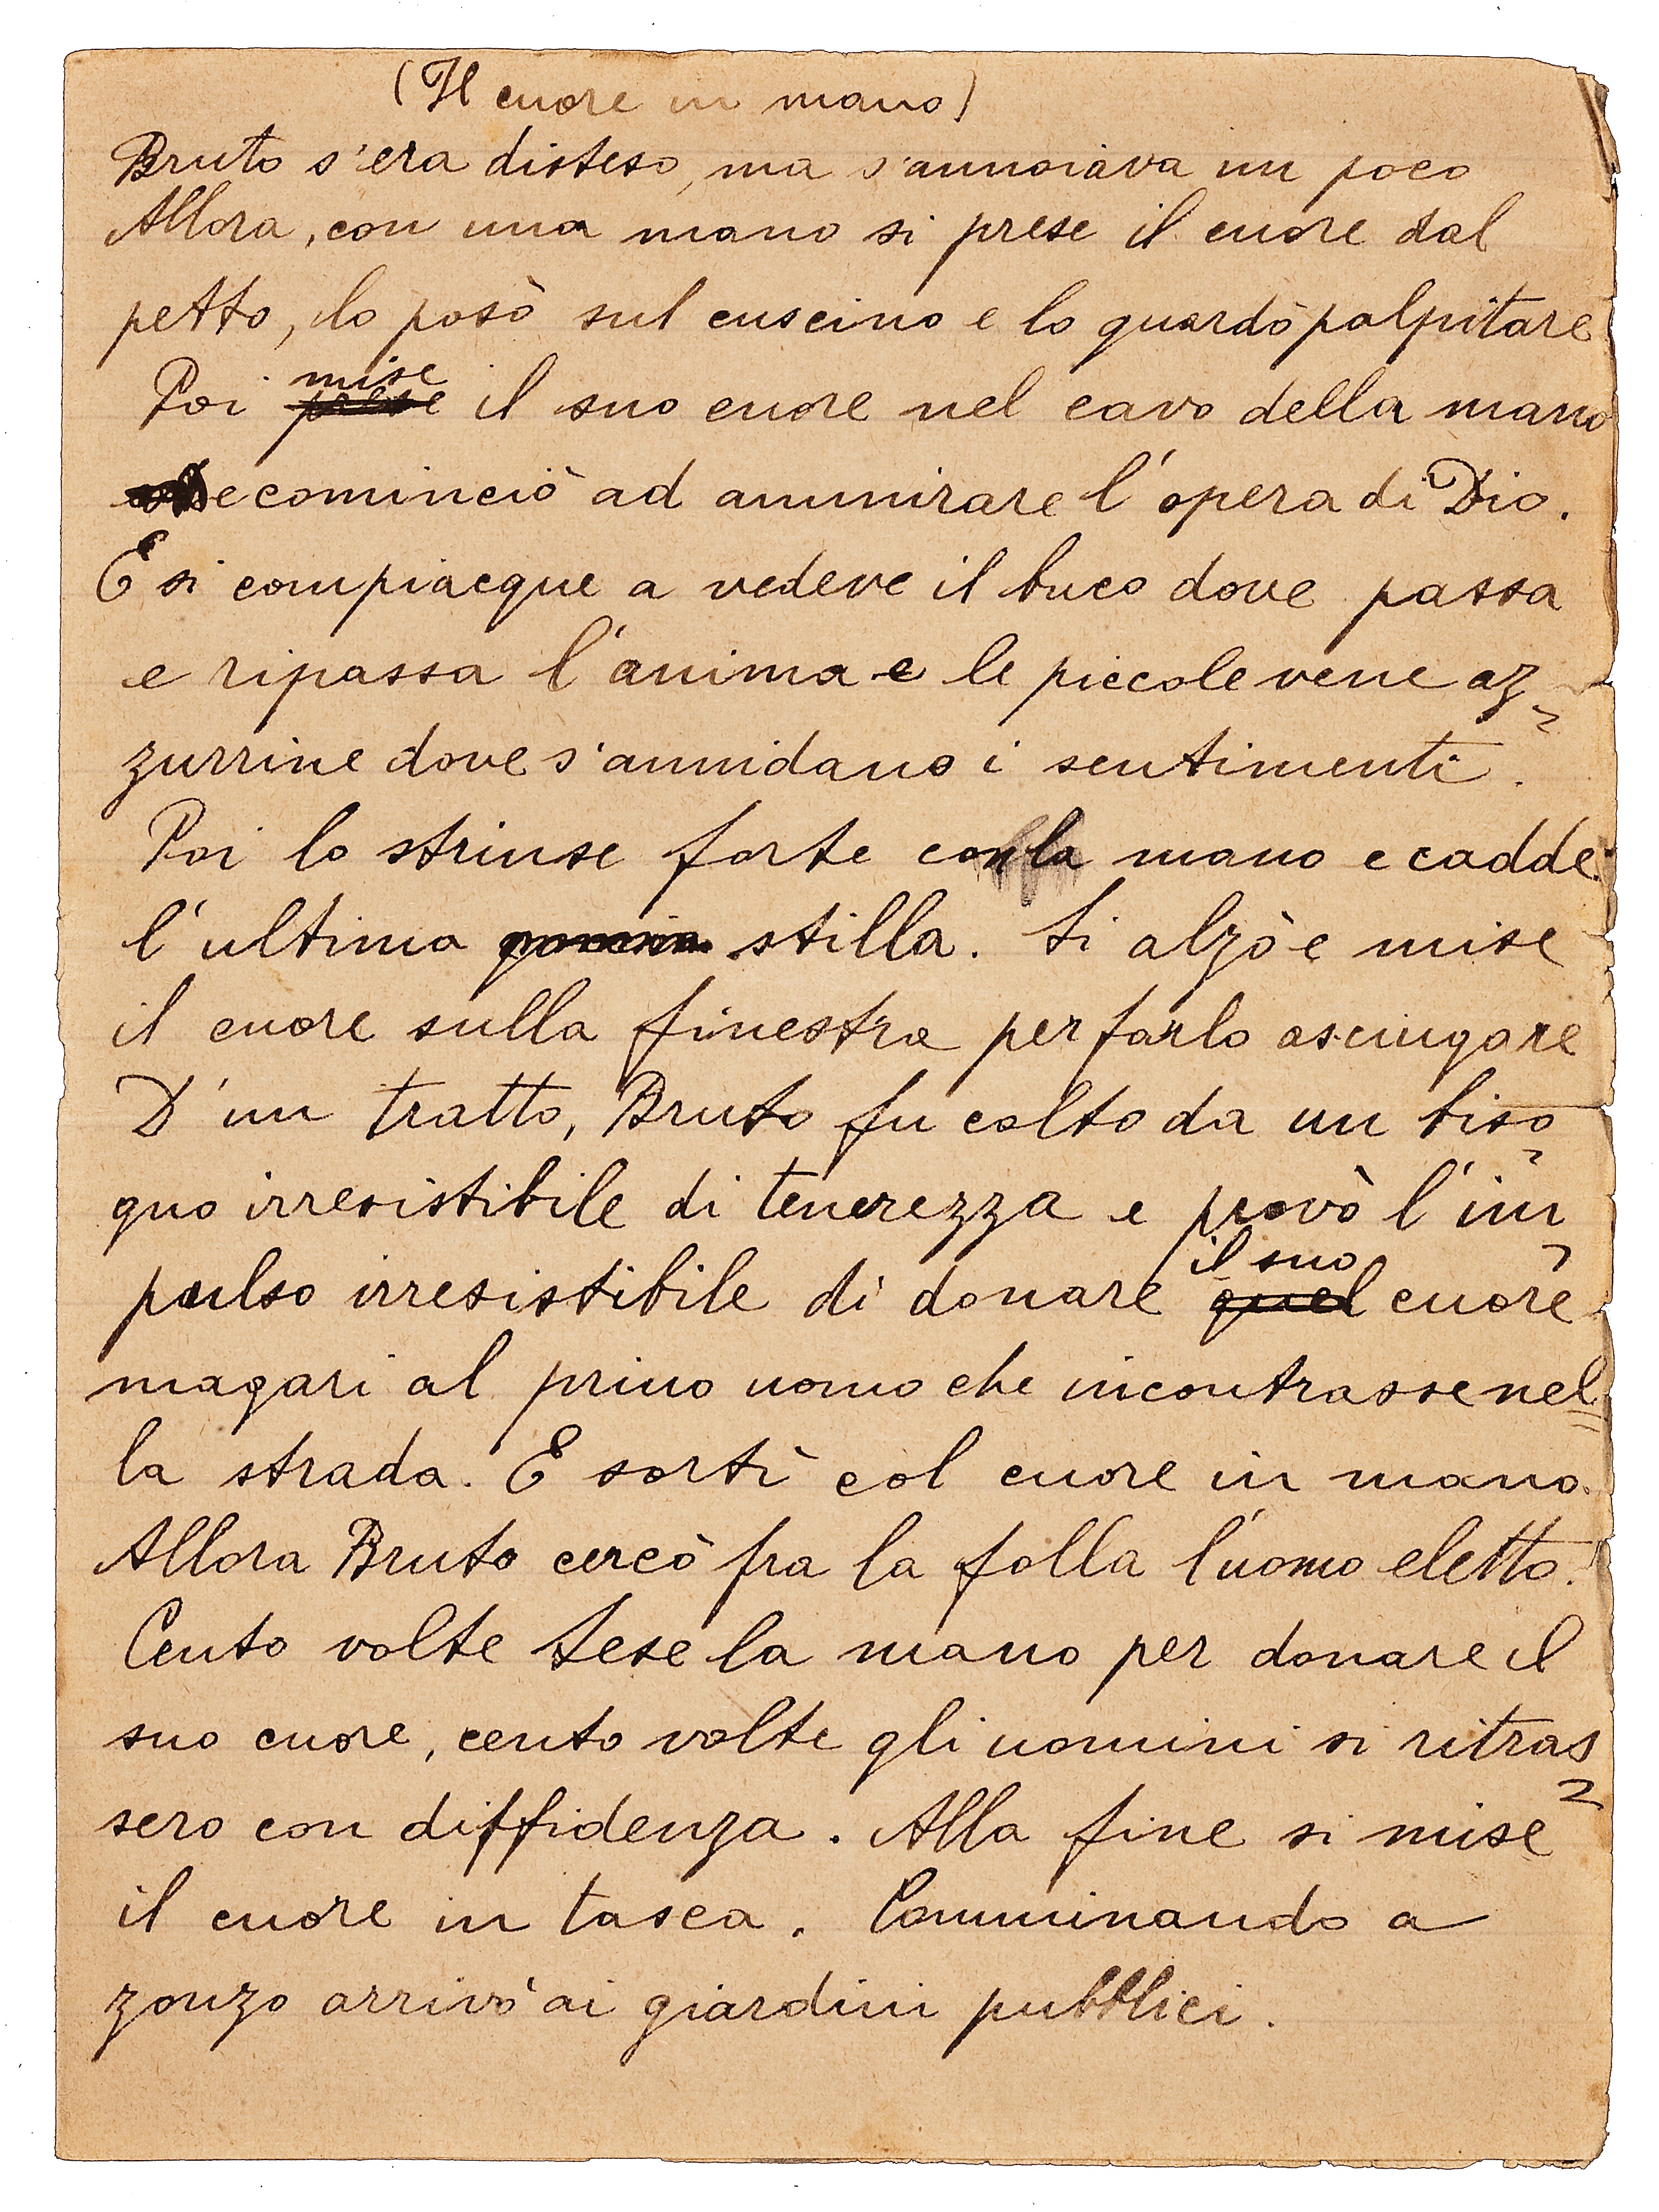 (Il cuore in mano)
Bruto s'era disteso, ma s'annoiava un poco
Allora, con una mano si prese il cuore dal
petto, lo posò sul cuscino e lo guardò palpitare
Poi prese mise il suo cuore nel cavo della mano
e cominciò ad ammirare l'opera di Dio.
E si compiacque a vedere il buco dove passa
e ripassa l'anima e le piccole vene az-
zurrine dove s'annidano i sentimenti.
Poi lo strinse forte con la mano e cadde
l'ultima stilla. Si alzò e mise
il cuore sulla finestra per farlo asciugare
D'un tratto, Bruto fu colto da un biso-
gno irresistibile di tenerezza e provò l'im-
pulso irresistibile di donare quel il suo cuore
magari al primo uomo che incontrasse nel=
la strada. E sortì col cuore in mano.
Allora Bruto cercò fra la folla l'uomo eletto.
Cento volte tese la mano per donare il
suo cuore, cento volte gli uomini si ritras=
sero con diffidenza. Alla fine si mise
il cuore in tasca. Camminando a
zonzo arrivò ai giardini pubblici.